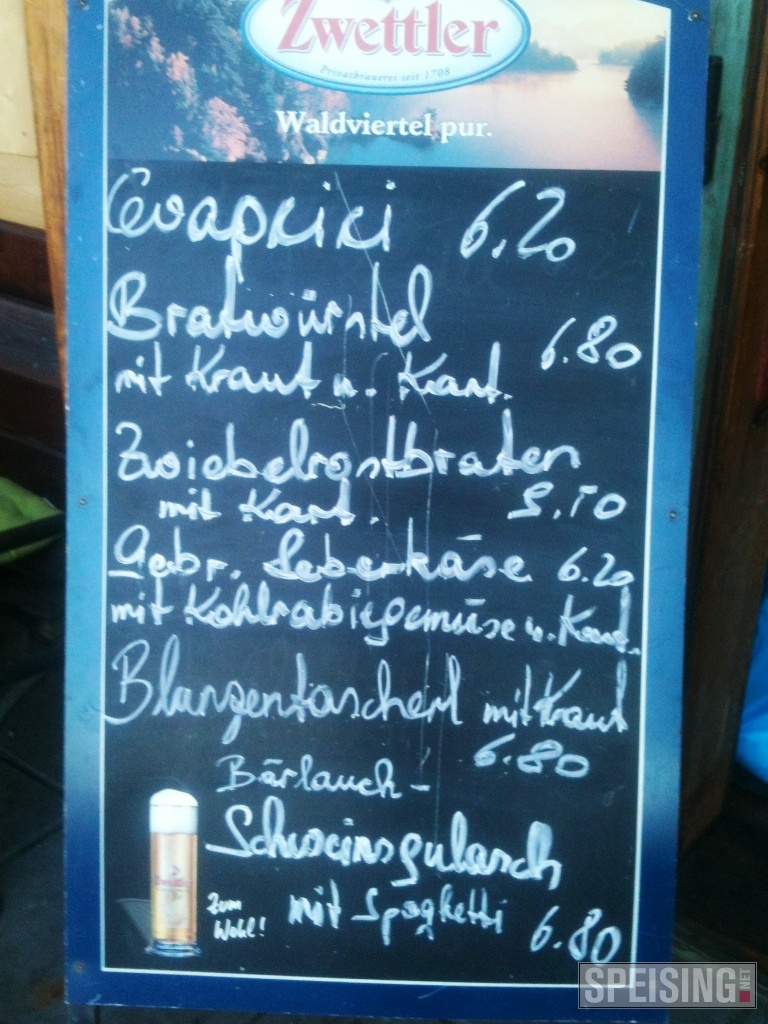 Zwettler
Privatbrauerei seit 1708
Waldviertel pur.
Cevapcici 6.20
Bratwürstel
mit Kraut u. Kart. 6.80
Zwiebelrostbraten
mit Kart. 9.10
Gebr. Leberkäse 6.20
mit Kohlrabigemüse u. Kart.
Blunzentascherl mit Kraut
6.80
Bärlauch-
Schweinsgulasch
mit Spaghetti 6.80
Zum
Wohl!
Zwettler
SPEISING.NET